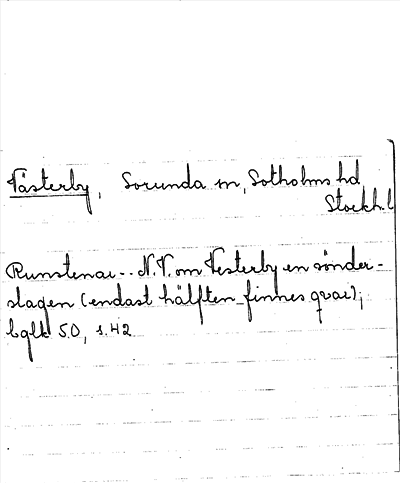 Västerby, Sorunda sn, Sotholms hd
Stockh.l
Runstenar.. N.V. om Vesterby en sönder-
slagen (endast hälften finnes qvar);
bglk 50, s. 42